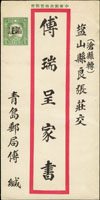 (滄縣轉)
鹽山縣良張莊交
傅瑞呈家書
青島郵局傅緘